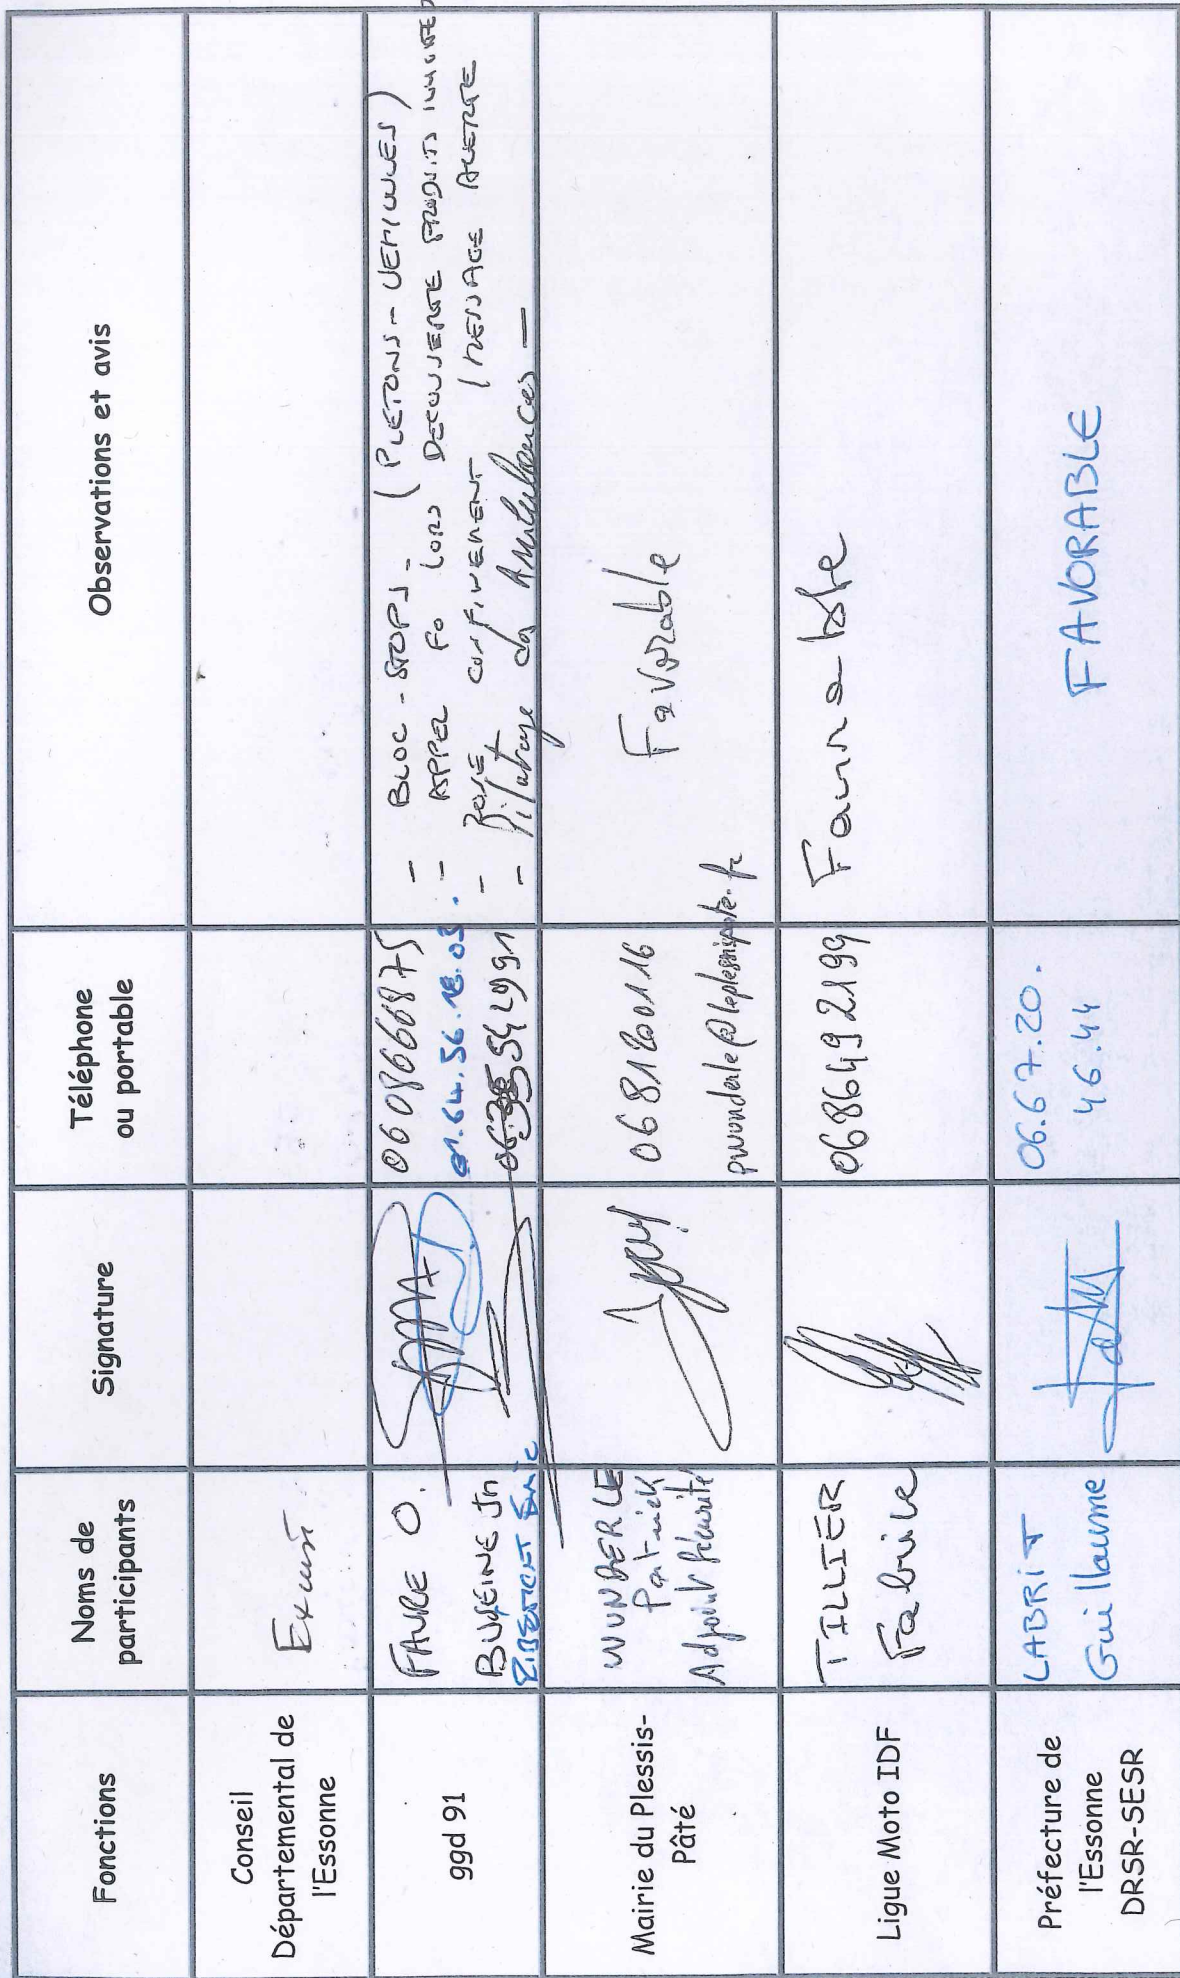 Fonctions
Noms de
participants
Signature
Téléphone
ou portable
Observations et avis
Conseil
Départemental de
l'Essonne
ggd 91
FAURE O.
0608666875
01.64.56.18.03.
- BLOC-STOPS - (PIETONS - VEHICULES)
- APPEL FO LORS DECOUVERTE PRODUITS
- ZONE CONFINEMENT / MESSAGE ALERTE
- Pilotage des Ambulances -
Mairie du Plessis-
Pâté
WUNDERLE
Patrick
Adjoint Sécurité
0681200116
pwunderle@leplessispate.fr
Favorable
Ligue Moto IDF
TILLIER
Fabrice
0686492199
Favorable
Préfecture de
l'Essonne
DRSR-SESR
LABRIT
Guillaume
06.67.20.
46.44
FAVORABLE